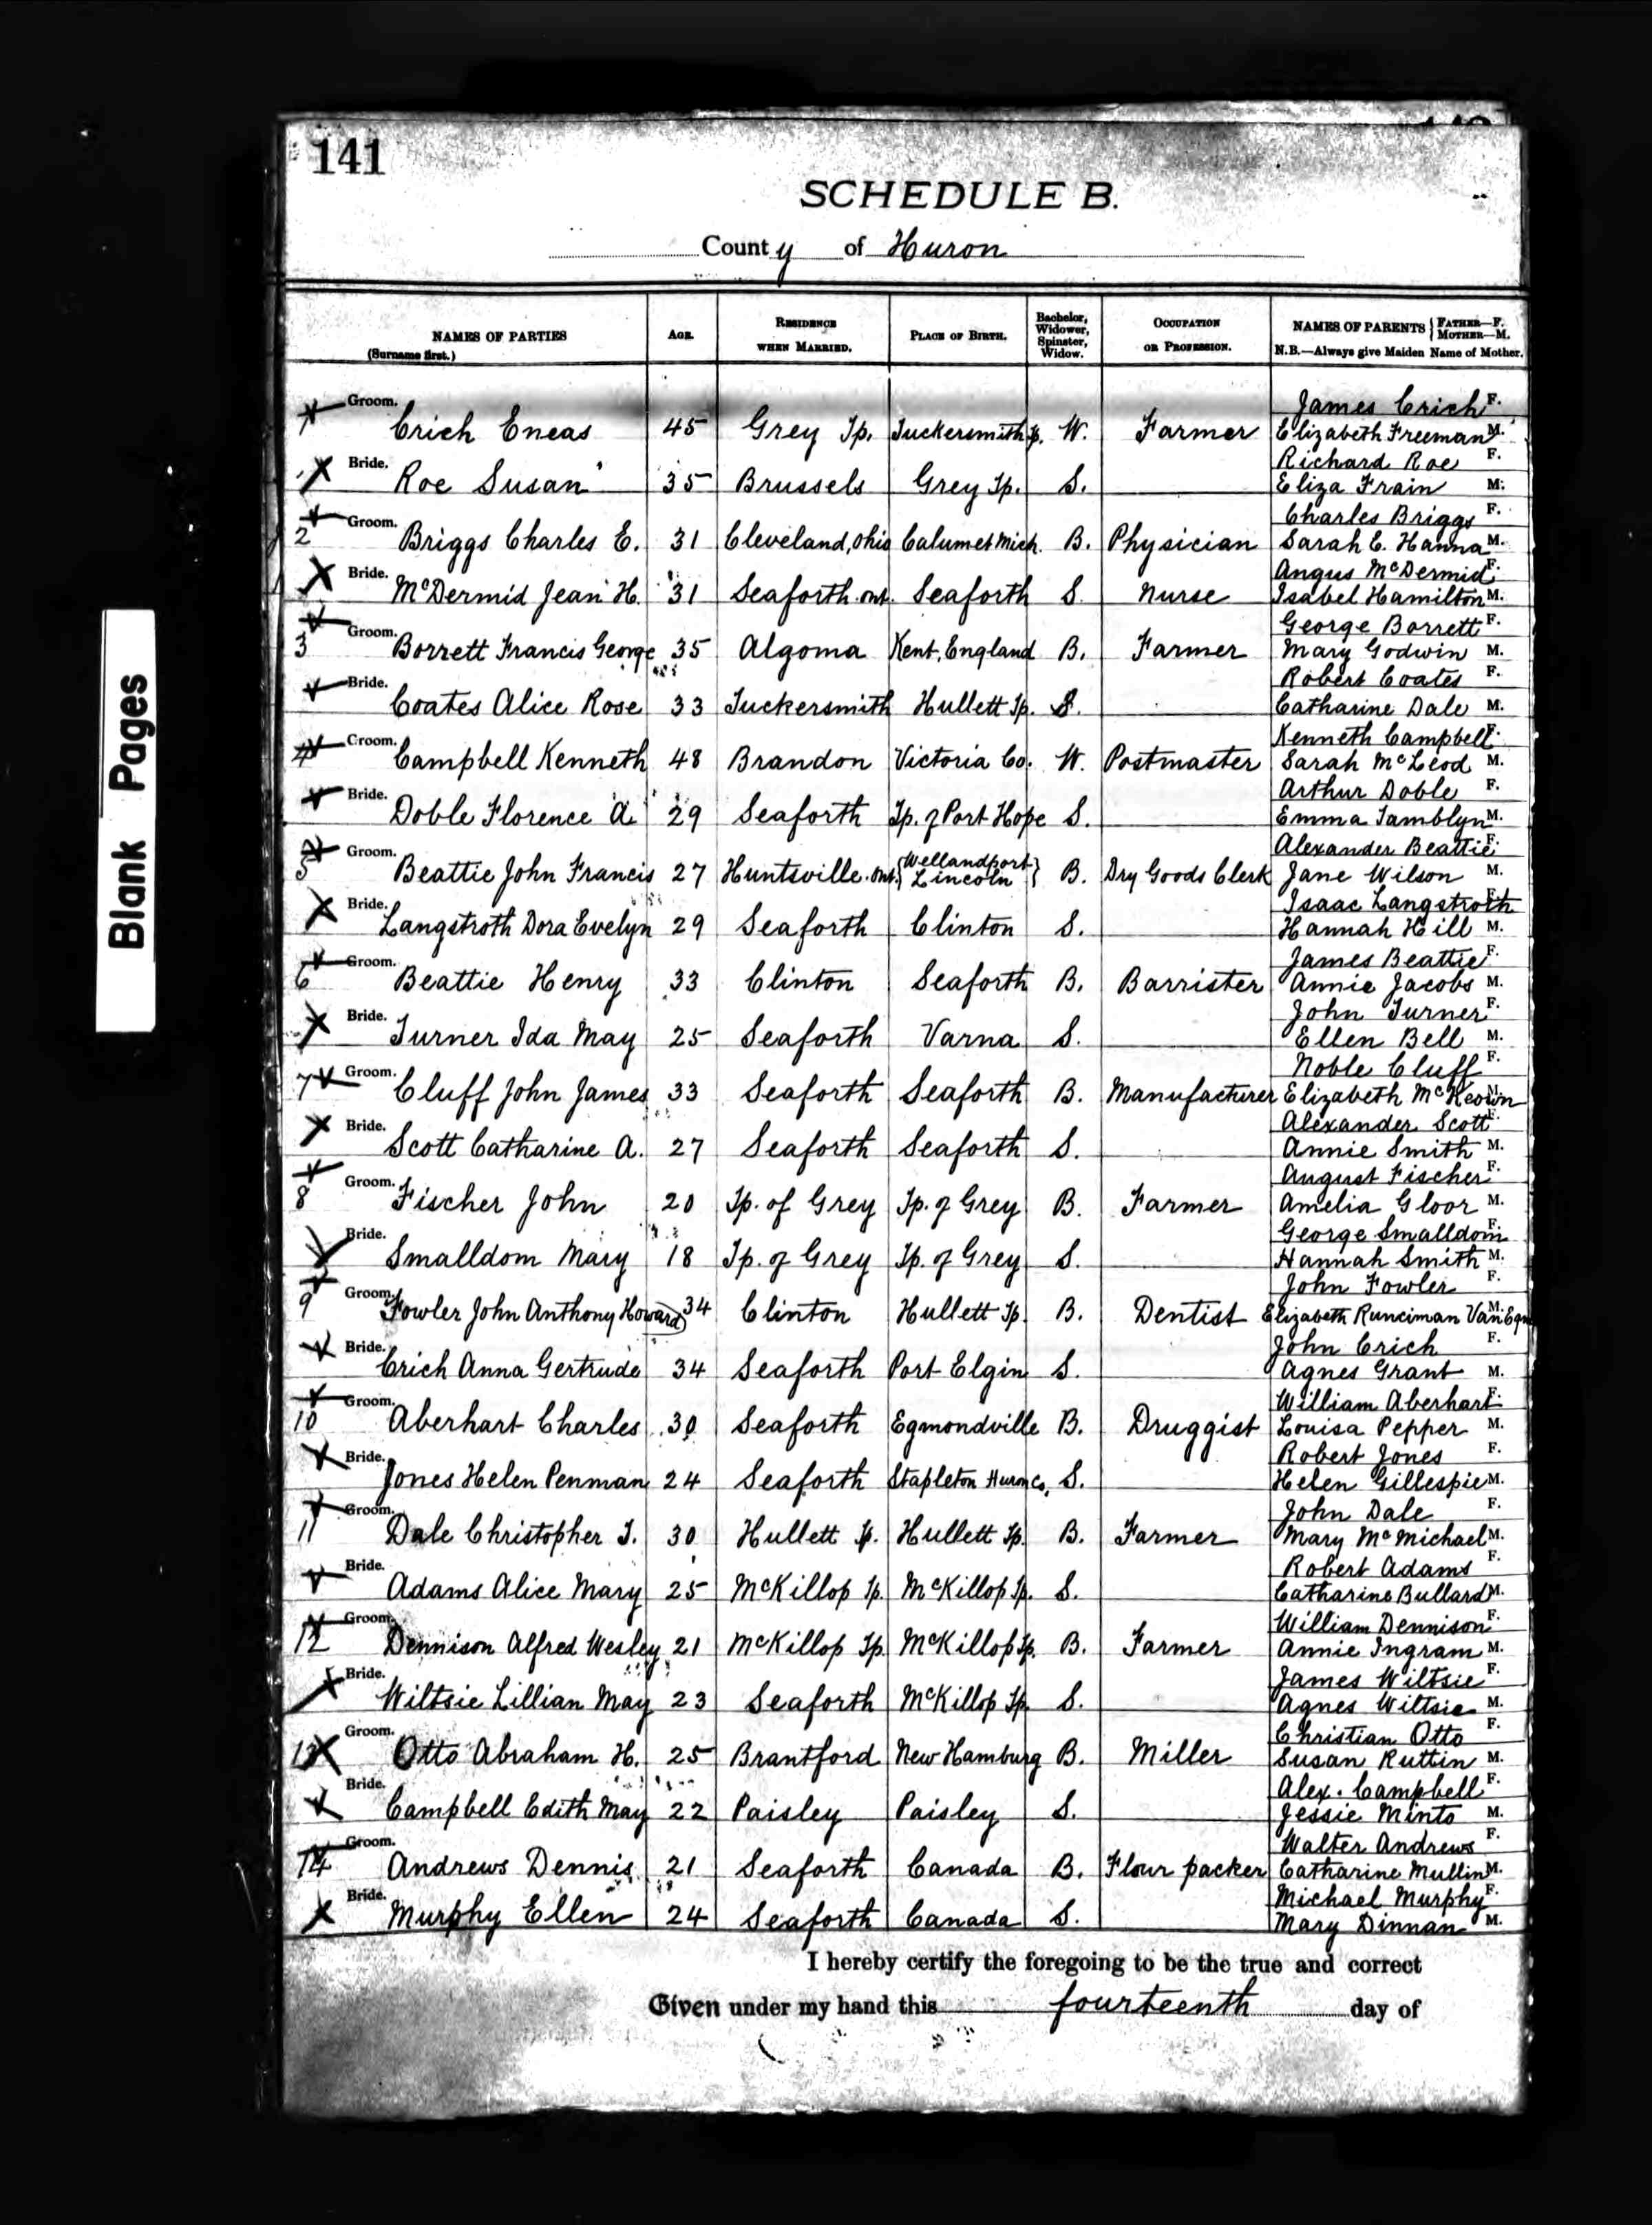 141
SCHEDULE B.
County of Huron
NAMES OF PARTIES (Surname first.) AGE. RESIDENCE WHEN MARRIED. PLACE OF BIRTH. Bachelor, Widower, Spinster, Widow. OCCUPATION OR PROFESSION. NAMES OF PARENTS { FATHER—F. MOTHER—M. N.B.—Always give Maiden Name of Mother.
James Crich F.
1 Groom. Crich Eneas 45 Grey Tp. Tuckersmith Tp. W. Farmer Elizabeth Freeman M.
Richard Roe F.
Bride. Roe Susan 35 Brussels Grey Tp. S. Eliza Frain M.
Charles Briggs F.
2 Groom. Briggs Charles E. 31 Cleveland, Ohio Calumet Mich. B. Physician Sarah E. Hanna M.
Angus McDermid F.
Bride. McDermid Jean H. 31 Seaforth Ont. Seaforth S. Nurse Isabel Hamilton M.
George Borrett F.
3 Groom. Borrett Francis George 35 Algoma Kent, England B. Farmer Mary Godwin M.
Robert Coates F.
Bride. Coates Alice Rose 33 Tuckersmith Hullett Tp. S. Catharine Dale M.
Kenneth Campbell F.
4 Groom. Campbell Kenneth 48 Brandon Victoria Co. W. Postmaster Sarah McLeod M.
Arthur Doble F.
Bride. Doble Florence A. 29 Seaforth Tp. of Port Hope S. Emma Tamblyn M.
Alexander Beattie F.
5 Groom. Beattie John Francis 27 Huntsville Ont. {Wellandport Lincoln} B. Dry Goods Clerk Jane Wilson M.
Isaac Langstroth F.
Bride. Langstroth Dora Evelyn 29 Seaforth Clinton S. Hannah Hill M.
James Beattie F.
6 Groom. Beattie Henry 33 Clinton Seaforth B. Barrister Annie Jacobs M.
John Turner F.
Bride. Turner Ida May 25 Seaforth Varna S. Ellen Bell M.
Noble Cluff F.
7 Groom. Cluff John James 33 Seaforth Seaforth B. Manufacturer Elizabeth McKeown M.
Alexander Scott F.
Bride. Scott Catharine A. 27 Seaforth Seaforth S. Annie Smith M.
August Fischer F.
8 Groom. Fischer John 20 Tp. of Grey Tp. of Grey B. Farmer Amelia Gloor M.
George Smalldom F.
Bride. Smalldom Mary 18 Tp. of Grey Tp. of Grey S. Hannah Smith M.
John Fowler F.
9 Groom. Fowler John Anthony Howard 34 Clinton Hullett Tp. B. Dentist Elizabeth Runciman M.
John Crich F.
Bride. Crich Anna Gertrude 34 Seaforth Port Elgin S. Agnes Grant M.
William Aberhart F.
10 Groom. Aberhart Charles 30 Seaforth Egmondville B. Druggist Louisa Pepper M.
Robert Jones F.
Bride. Jones Helen Penman 24 Seaforth Stapleton Huron Co. S. Helen Gillespie M.
John Dale F.
11 Groom. Dale Christopher T. 30 Hullett Tp. Hullett Tp. B. Farmer Mary McMichael M.
Robert Adams F.
Bride. Adams Alice Mary 25 McKillop Tp. McKillop Tp. S. Catharine Bullard M.
William Dennison F.
12 Groom. Dennison Alfred Wesley 21 McKillop Tp. McKillop Tp. B. Farmer Annie Ingram M.
James Wiltsie F.
Bride. Wiltsie Lillian May 23 Seaforth McKillop Tp. S. Agnes Wiltsie M.
Christian Otto F.
13 Groom. Otto Abraham H. 25 Brantford New Hamburg B. Miller Susan Ruttin M.
Alex. Campbell F.
Bride. Campbell Edith May 22 Paisley Paisley S. Jessie Minto M.
Walter Andrews F.
14 Groom. Andrews Dennis 21 Seaforth Canada B. Flour packer Catharine Mullin M.
Michael Murphy F.
Bride. Murphy Ellen 24 Seaforth Canada S. Mary Dinnan M.
I hereby certify the foregoing to be the true and correct
Given under my hand this fourteenth day of
Blank Pages